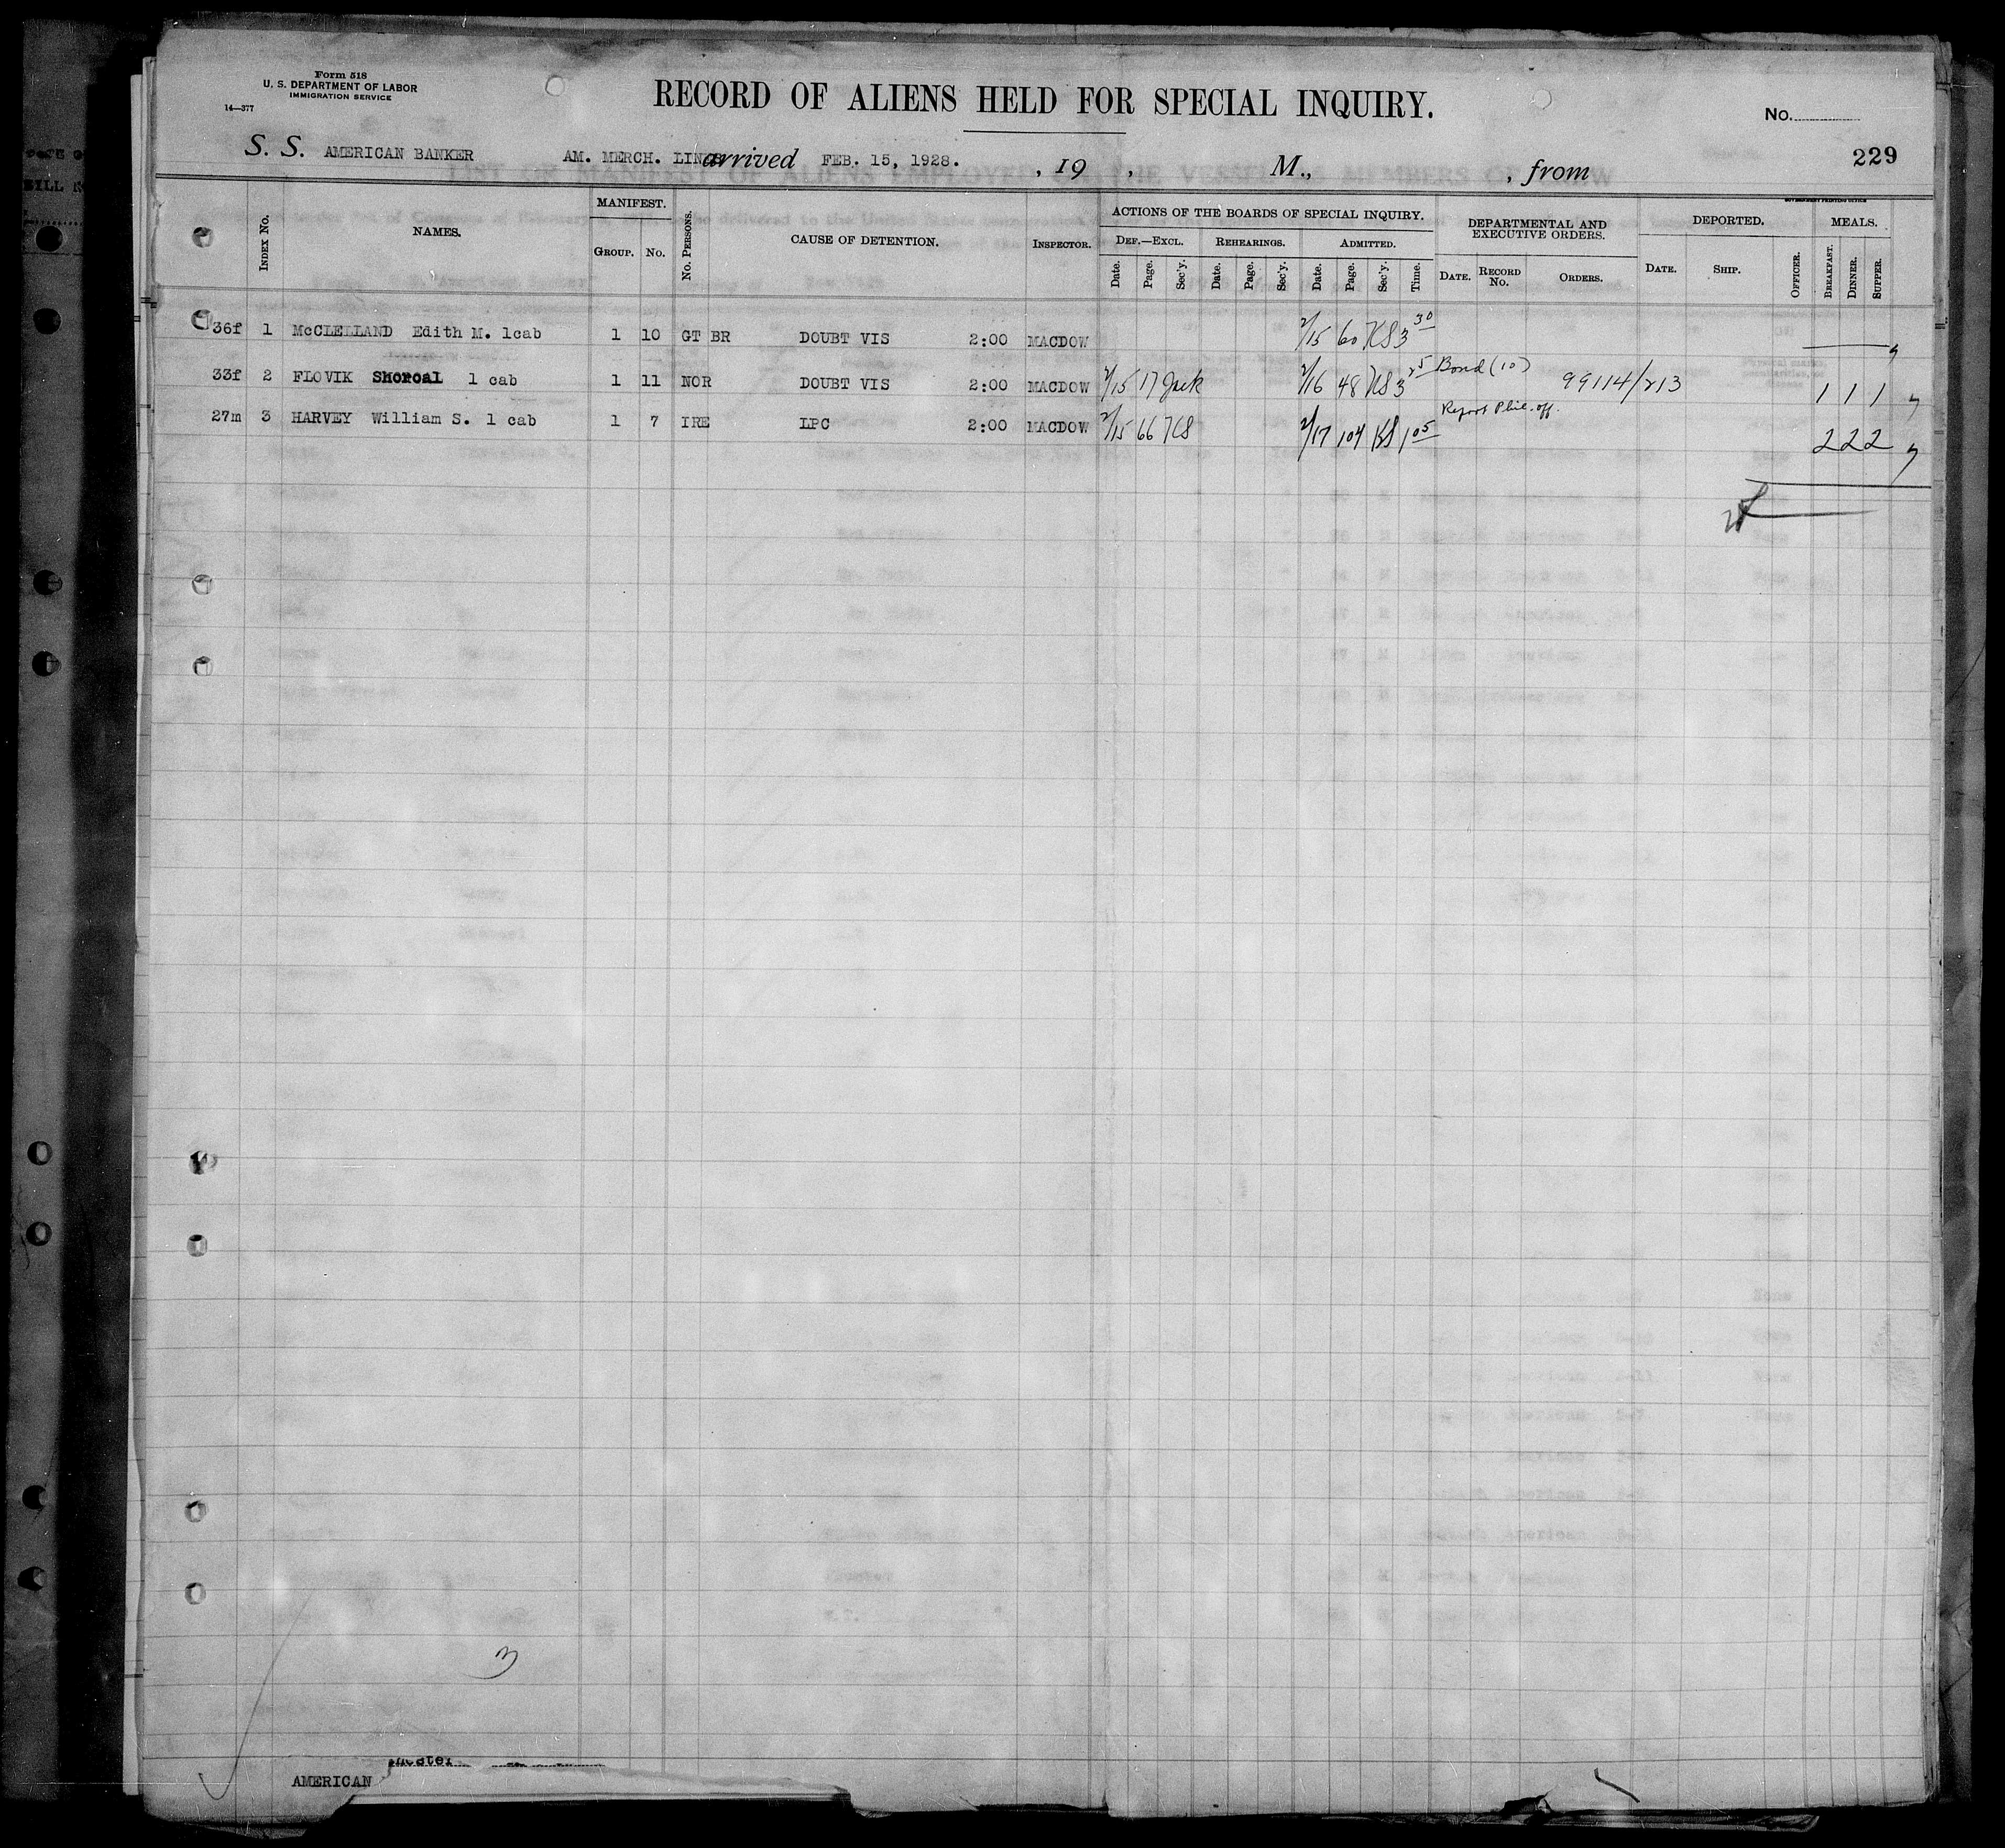 Form 518
U. S. DEPARTMENT OF LABOR
IMMIGRATION SERVICE
14—377
RECORD OF ALIENS HELD FOR SPECIAL INQUIRY.
No.
S. S. AMERICAN BANKER AM. MERCH. LINES arrived FEB. 15, 1928. , 19 , M., , from
229
INDEX No. NAMES. MANIFEST. GROUP. No. No. PERSONS. CAUSE OF DETENTION. INSPECTOR. ACTIONS OF THE BOARDS OF SPECIAL INQUIRY. DEPARTMENTAL AND EXECUTIVE ORDERS. DEPORTED. MEALS.
DEF.—EXCL. REHEARINGS. ADMITTED.
Date. Page. Sec'y. Date. Page. Sec'y. Date. Page. Sec'y. Time. DATE. RECORD No. ORDERS. DATE. SHIP. OFFICER. BREAKFAST. DINNER. SUPPER.
36f 1 McCLELLAND Edith M. 1cab 1 10 GT BR DOUBT VIS 2:00 MACDOW 2/15 60 KS 3 30
33f 2 FLOVIK 1 cab 1 11 NOR DOUBT VIS 2:00 MACDOW 2/15 17 Jack 2/16 48 KS 3 25 Bond (10) 99114/213 1 1 1
Report Phil. off.
27m 3 HARVEY William S. 1 cab 1 7 IRE LPC 2:00 MACDOW 2/15 66 KS 2/17 104 KS 1 05 2 2 2
3
AMERICAN